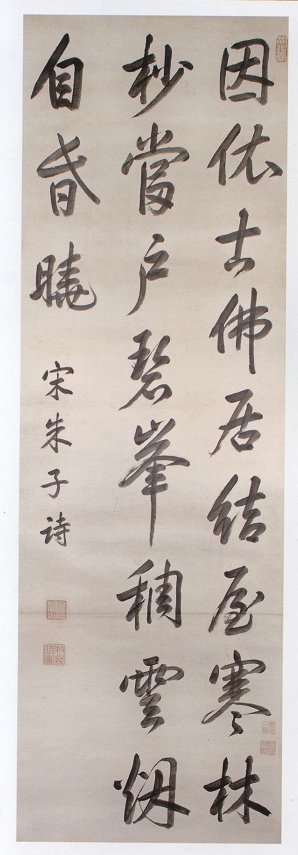 因依古佛居結屋寒林
杪當戶碧峯稠雲烟
自昏曉
宋朱子詩